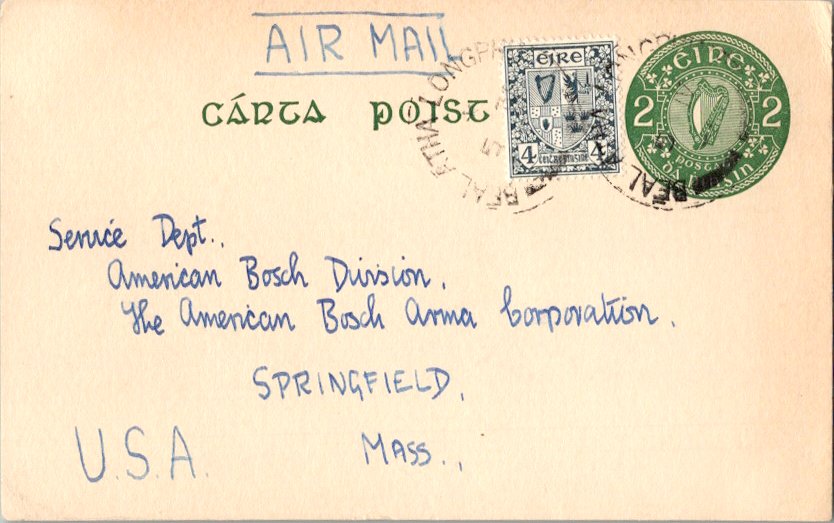 AIR MAIL
CÁRTA POIST
ÉIRE
4 4
ÉIRE
2 2
POSTAS
Service Dept.,
American Bosch Division,
The American Bosch Arma Corporation,
SPRINGFIELD,
U.S.A. MASS.,